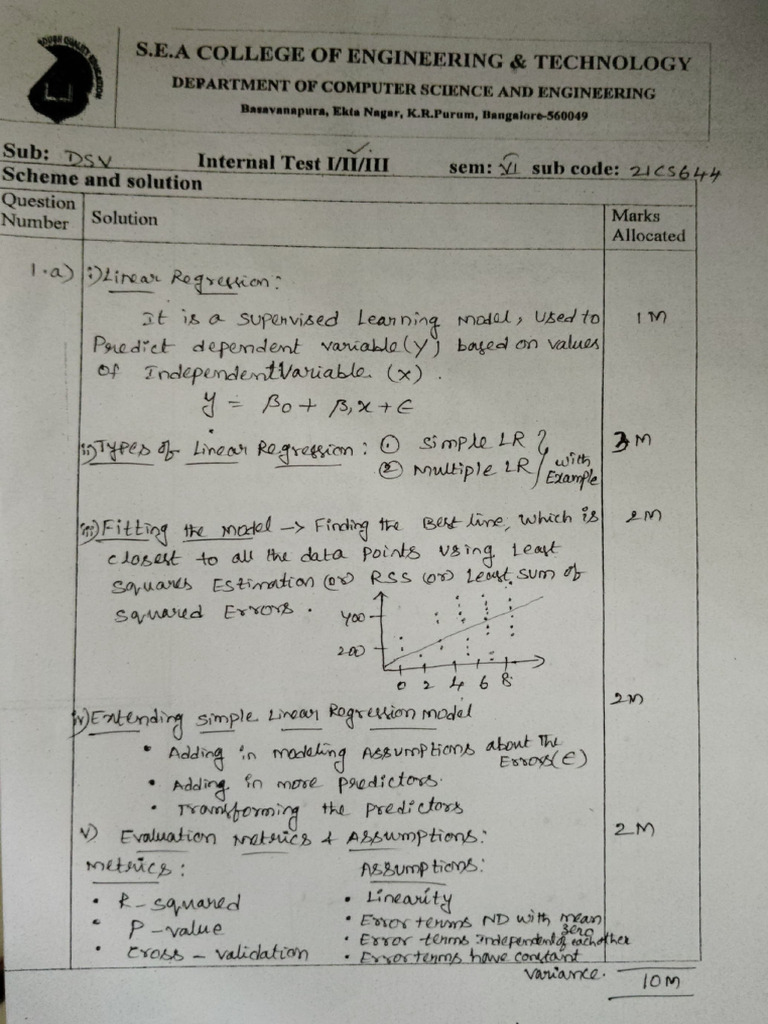 S.E.A COLLEGE OF ENGINEERING & TECHNOLOGY
DEPARTMENT OF COMPUTER SCIENCE AND ENGINEERING
Basavanapura, Ekta Nagar, K.R.Purum, Bangalore-560049
Sub: DSV Internal Test I/II/III sem: VI sub code: 21CS644
Scheme and solution
Question Number Solution Marks Allocated
1.a) i) Linear Regression:
It is a supervised Learning model, used to 1M
Predict dependent variable (y) based on values
of Independent Variable (x).
y = β0 + β1x + ϵ
ii) Types of Linear Regression: ① Simple LR 3M
② Multiple LR with Example
iii) Fitting the model → Finding the Best line, which is 2M
closest to all the data points using Least
Squares Estimation (or) RSS (or) Least sum of
squared Errors.
400
200
0 2 4 6 8
iv) Extending simple Linear Regression model 2M
• Adding in modeling Assumptions about the Errors(ϵ)
• Adding in more predictors.
• Transforming the predictors
v) Evaluation Metrics & Assumptions: 2M
Metrics: Assumptions:
• R-squared • Linearity
• P-value • Error terms ND with mean zero
• Cross-validation • Error terms Independent of each other
• Error terms have constant
variance. 10M